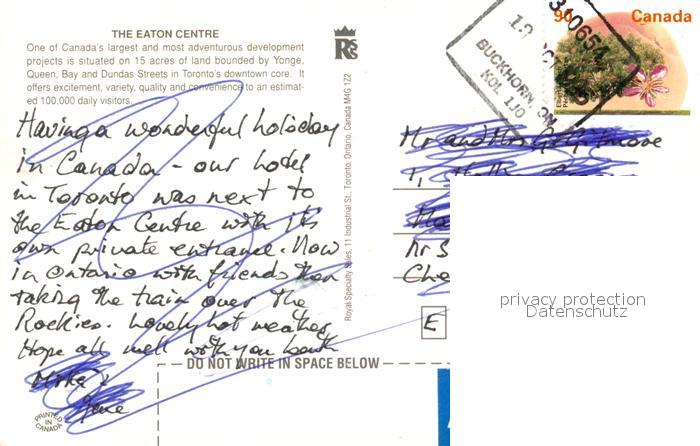 THE EATON CENTRE
One of Canada's largest and most adventurous development
projects is situated on 15 acres of land bounded by Yonge,
Queen, Bay and Dundas Streets in Toronto's downtown core. It
offers excitement, variety, quality and convenience to an estimat-
ed 100,000 daily visitors.
Having a wonderful holiday
in Canada - our hotel
in Toronto was next to
the Eaton Centre with its
own private entrance. Now
in Ontario with friends then
taking the train over the
Rockies. Lovely hot weather,
Hope all well with you both
PRINTED
IN
CANADA
Royal Specialty Sales, 11 Industrial St., Toronto, Ontario, Canada M4G 1Z2
90 Canada
BUCKHORN, ON
K0L 1J0
Mr and Mrs
E
DO NOT WRITE IN SPACE BELOW
privacy protection
Datenschutz